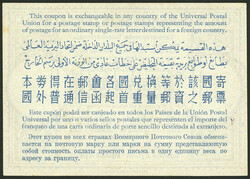 This coupon is exchangeable in any country of the Universal Postal
Union for a postage stamp or postage stamps representing the amount
of postage for an ordinary single-rate letter destined for a foreign country.
本券得在郵會各國兌換等於該國寄
國外普通信函起首重量郵資之郵票
Este cupón podrá ser canjeado en todos los Países de la Unión Postal
Universal por uno o varios sellos postales que representen el importe del
franqueo de una carta ordinaria de porte sencillo destinada al extranjero.
Этот купон во всех странах Всемирного Почтового Союза обменивается
на почтовую марку или марки на сумму представляющую
собой стоимость оплаты простого письма в одну единицу веса по
адресу за границу.